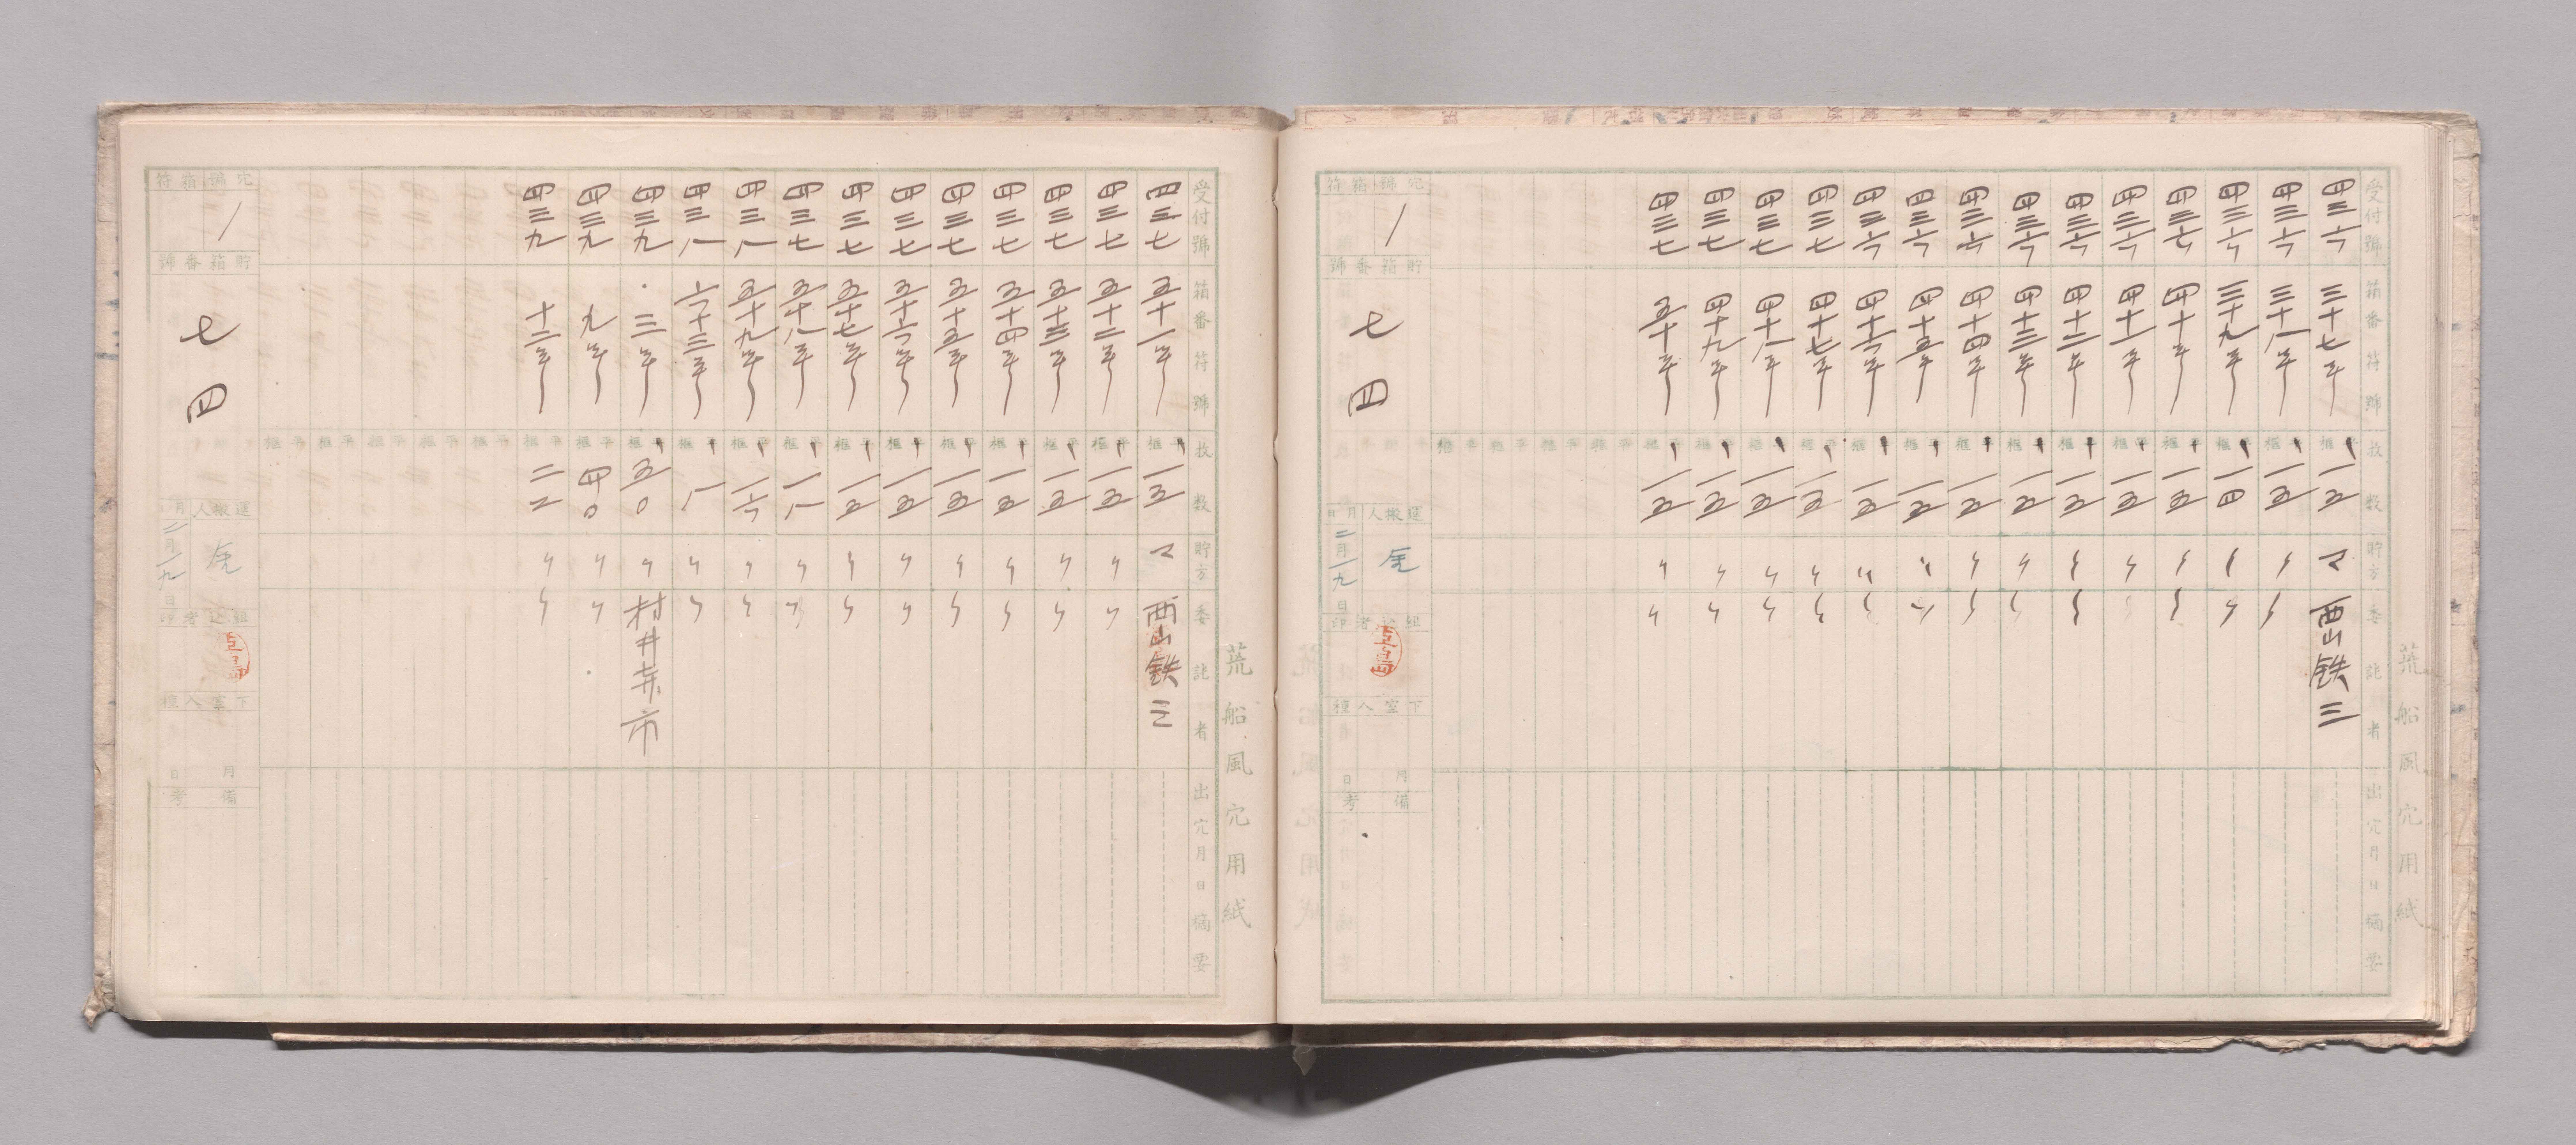 荒船風穴用紙
受付號
箱番符號
枚数
貯方
委託者
出穴月日摘要
四三六 三十七年 一五 マ 西山鉄三
四三六 三十八年 一五 〃 〃
四三六 三十九年 一四 〃 〃
四三六 四十年 一五 〃 〃
四三六 四十一年 一五 〃 〃
四三六 四十二年 一五 〃 〃
四三六 四十三年 一五 〃 〃
四三六 四十四年 一五 〃 〃
四三六 四十五年 一五 〃 〃
四三六 四十六年 一五 〃 〃
四三七 四十七年 一五 〃 〃
四三七 四十八年 一五 〃 〃
四三七 四十九年 一五 〃 〃
四三七 五十年 一五 〃 〃
穴號箱符
一
貯箱番號
七四
運搬人
月日
二月一九日
組込者印
下室入種
月日
備考
荒船風穴用紙
受付號
箱番符號
枚数
貯方
委託者
出穴月日摘要
四三七 五十一年 一五 マ 西山鉄三
四三七 五十二年 一五 〃 〃
四三七 五十三年 一五 〃 〃
四三七 五十四年 一五 〃 〃
四三七 五十五年 一五 〃 〃
四三七 五十六年 一五 〃 〃
四三七 五十七年 一五 〃 〃
四三七 五十八年 一八 〃 〃
四三八 五十九年 一六 〃 〃
四三八 六十三年 八 〃 〃
四三九 三年 五〇 〃 村井寿市
四三九 九年 四〇 〃 〃
四三九 十二年 二二 〃 〃
穴號箱符
一
貯箱番號
七四
運搬人
月日
二月一九日
組込者印
下室入種
月日
備考